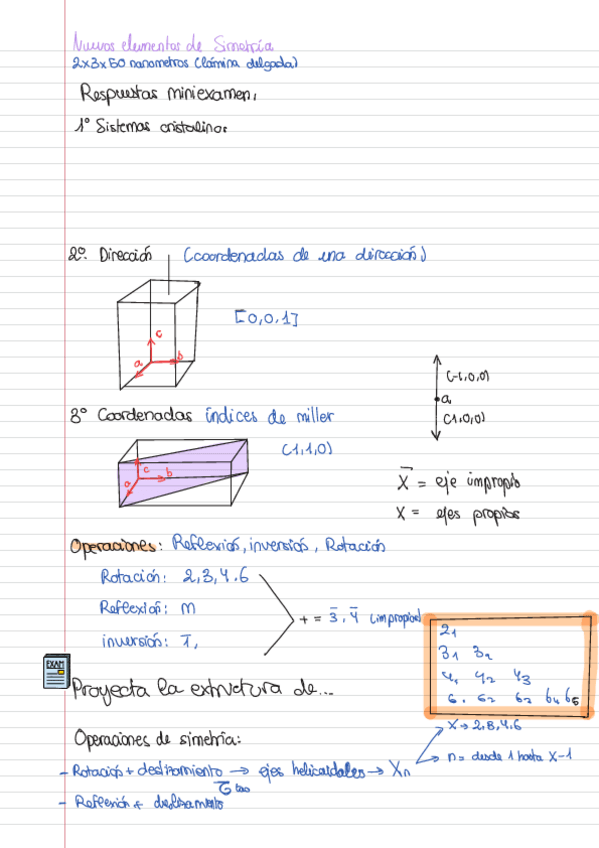 Nuevos elementos de Simetría
2x3x50 nanometros (lámina delgada)
Respuestas miniexamen:
1º Sistemas cristalinos
2º. Dirección (coordenadas de una dirección)
[0,0,1]
c
a b
(-1,0,0)
a
(1,0,0)
3º Coordenadas índices de miller
(1,1,0)
c
a b
X̅ = eje impropio
X = ejes propios
Operaciones: Reflexión, inversión, Rotación
Rotación: 2,3,4.6
Reflexión: m
inversión: 1̅,
+ = 3̅, 4̅ (impropios)
2₁
3₁ 3₂
4₁ 4₂ 4₃
6₁ 6₂ 6₃ 6₄ 6₅
EXAM
Proyecta la estructura de...
Operaciones de simetría:
X → 2,3,4.6
- Rotación + deslizamiento → ejes helicoidales → Xn
n = desde 1 hasta X-1
- Reflexión + deslizamiento